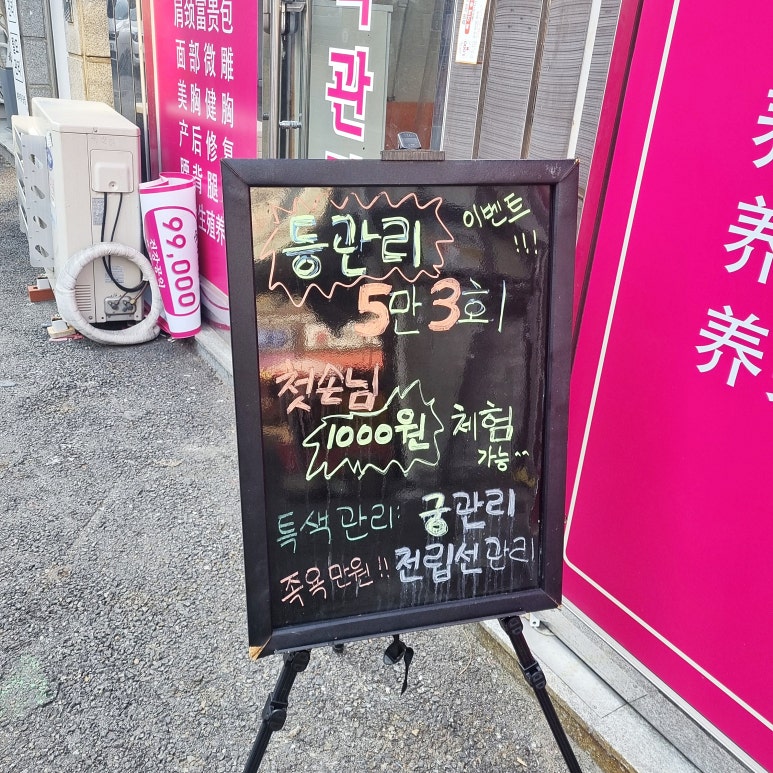 肩颈富贵包
面部微雕
美胸健胸
产后修复
腰背腿
生殖养
관
99,000
등관리 이벤트!!!
5만 3회
첫손님
1000원 체험
가능^^
특색관리: 궁관리
족욕만원!! 전립선관리
养
养